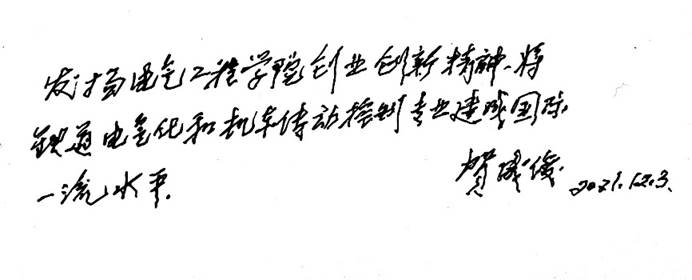 发扬电气工程学院创业创新精神、将
铁道电气化和机车传动控制专业建成国际
一流水平.
贺威俊. 2021.12.3.